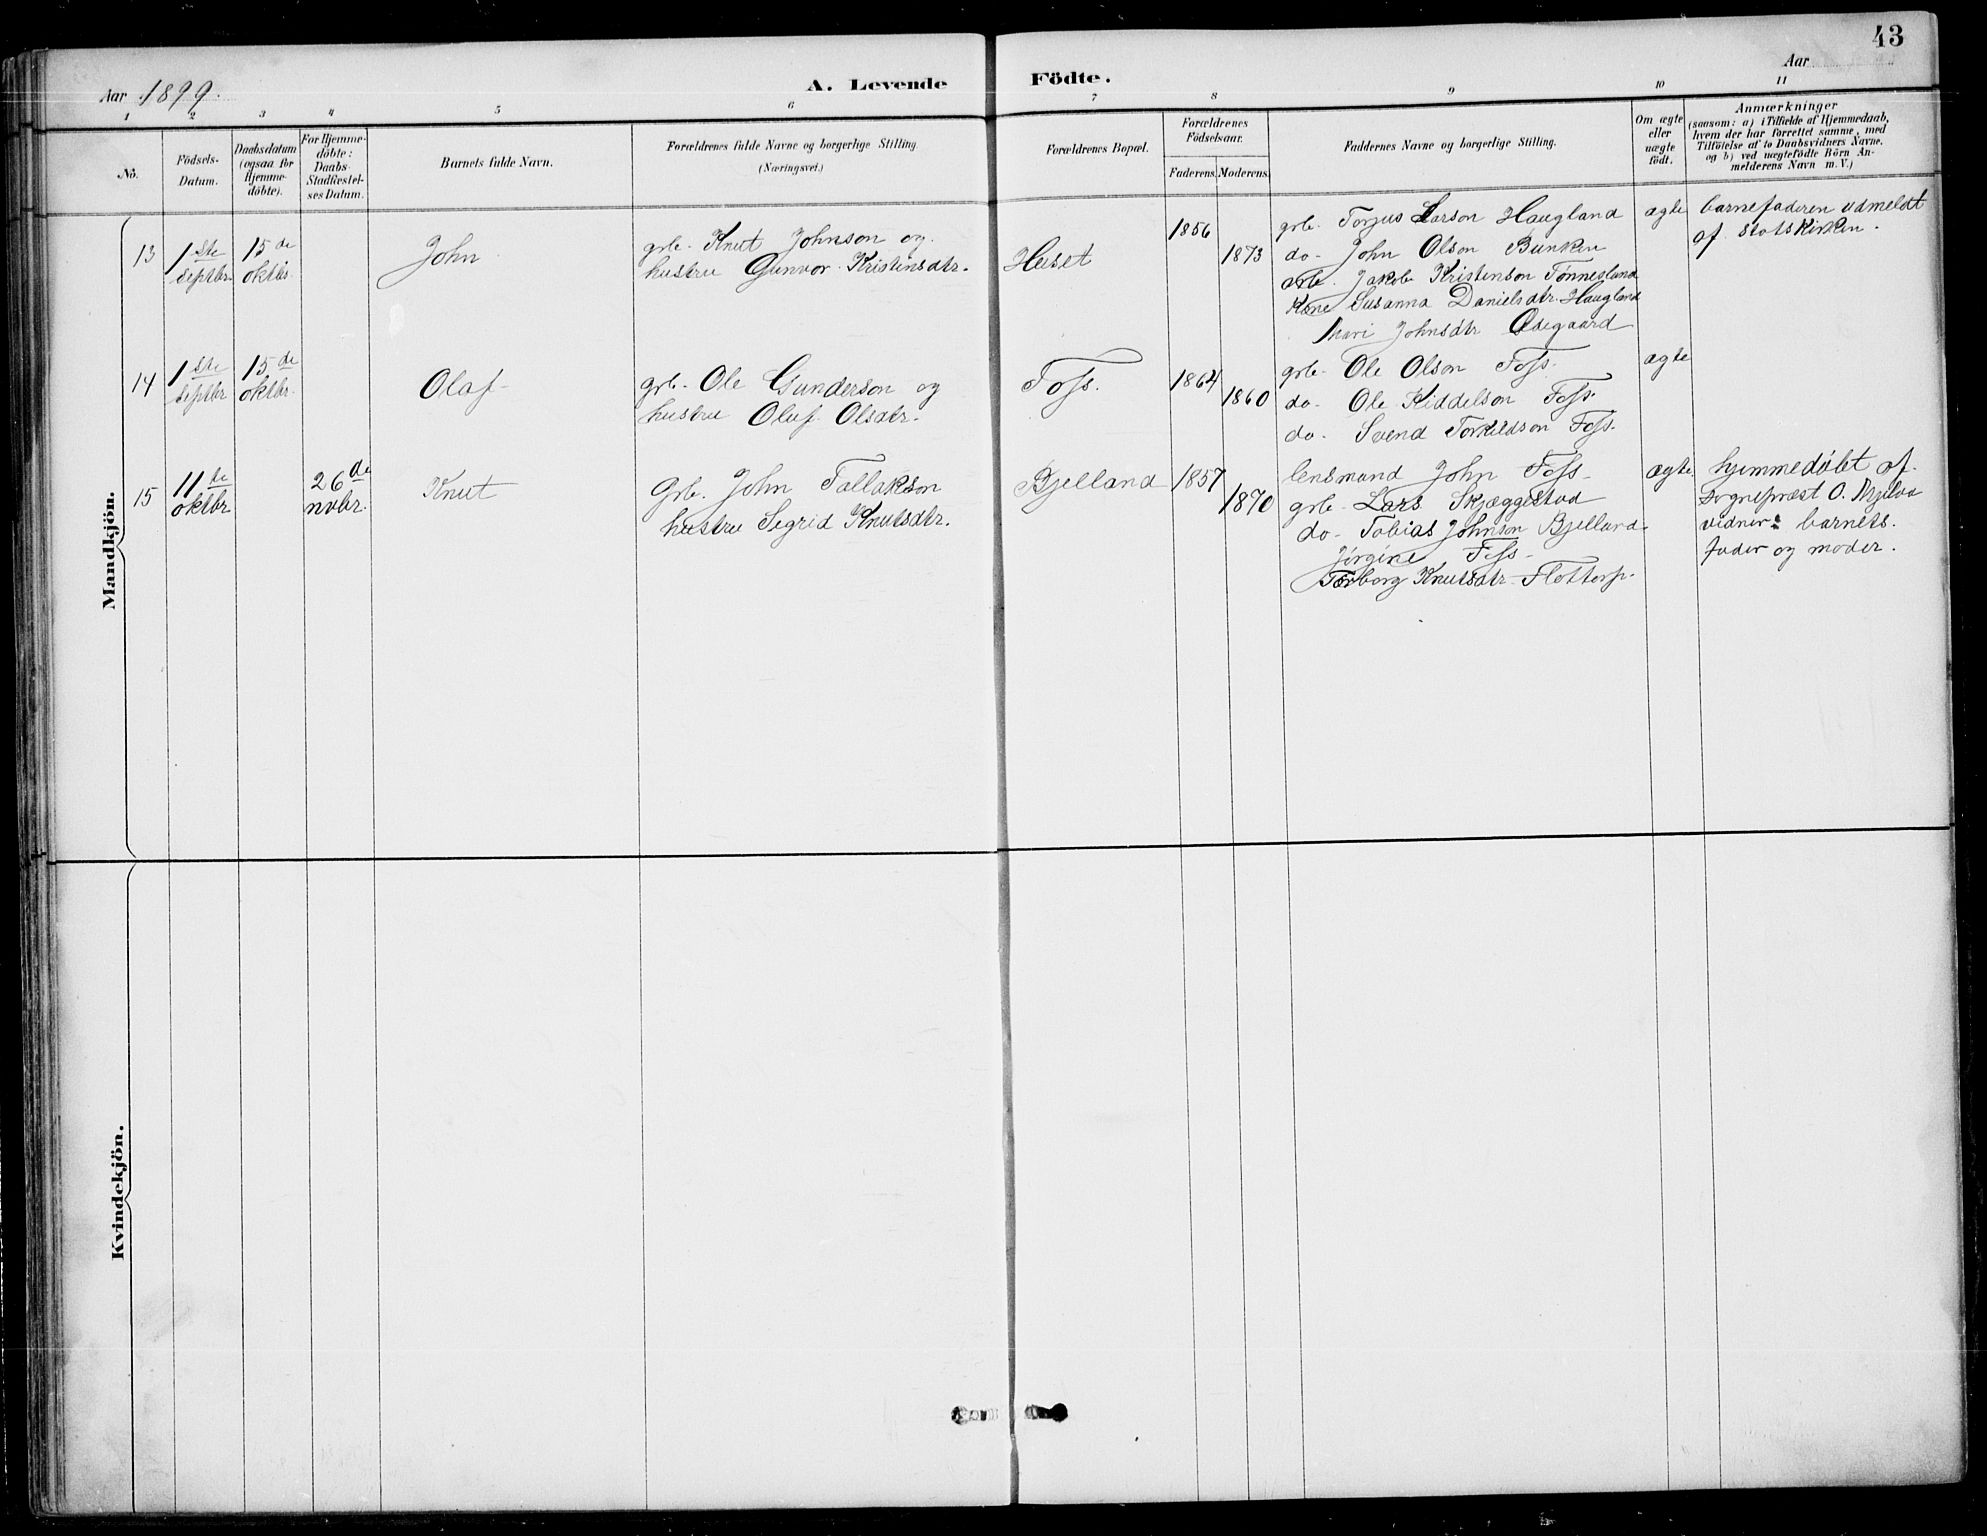 43
Aar 1899.
A. Levende Födte.
Aar
1 2 3 4 5 6 7 8 9 10 11
No.
Födsels-
Datum.
Daabsdatum
(ogsaa for
Hjemme-
döbte).
For Hjemme-
döbte:
Daabs-
Stadfæstel-
ses Datum.
Barnets fulde Navn.
Forældrenes fulde Navne og borgerlige Stilling
(Næringsvei.)
Forældrenes Bopæl.
Forældrenes
Födselsaar.
Faderens. Moderens.
Faddernes Navne og borgerlige Stilling.
Om ægte
eller
uægte
födt.
Anmærkninger
(saasom: a) i Tilfælde af Hjemmedaab,
hvem der har forrettet samme, med
Tilföielse af to Daabsvidners Navne.
og b) ved uægtefödte Börn An-
melderens Navn m. V.)
Mandkjön.
13
1ste
septbr.
15de
oktbr.
John
grb. Knut Johnson og
hustru Gunvor Kristensdtr.
Huset
1856
1873
grb. Torjus Larson Haugland
do- John Olson Bunken
grb. Jakob Kristenson Tønnesland
Kone Susanna Danielsdtr. Haugland
Mari Johnsdtr Ødegaard
ægte
barnefaderen udmeldt
af statskirken.
14
1ste
septbr
15de
oktbr.
Olaf
grb. Ole Gunderson og
hustru Oluf Olsdtr.
Foss.
1864
1860
grb. Ole Olson Foss.
do- Ole Kiddelson Foss.
do- Svend Torkildson Foss.
ægte
15
11te
oktbr
26de
nvbr.
Knut
Grb. John Tallakson
hustru Sigrid Knutsdtr.
Bjelland
1857
1870
lensmand John Foss
grb- Lars Skjæggestad
do- Tobias Johnson Bjelland
Jørgine Foss
Torborg Knutsdtr Flottorp.
ægte
hjemmedøbt af
sognepræst O.
vidner: barnets
fader og moder.
Kvindekjön.